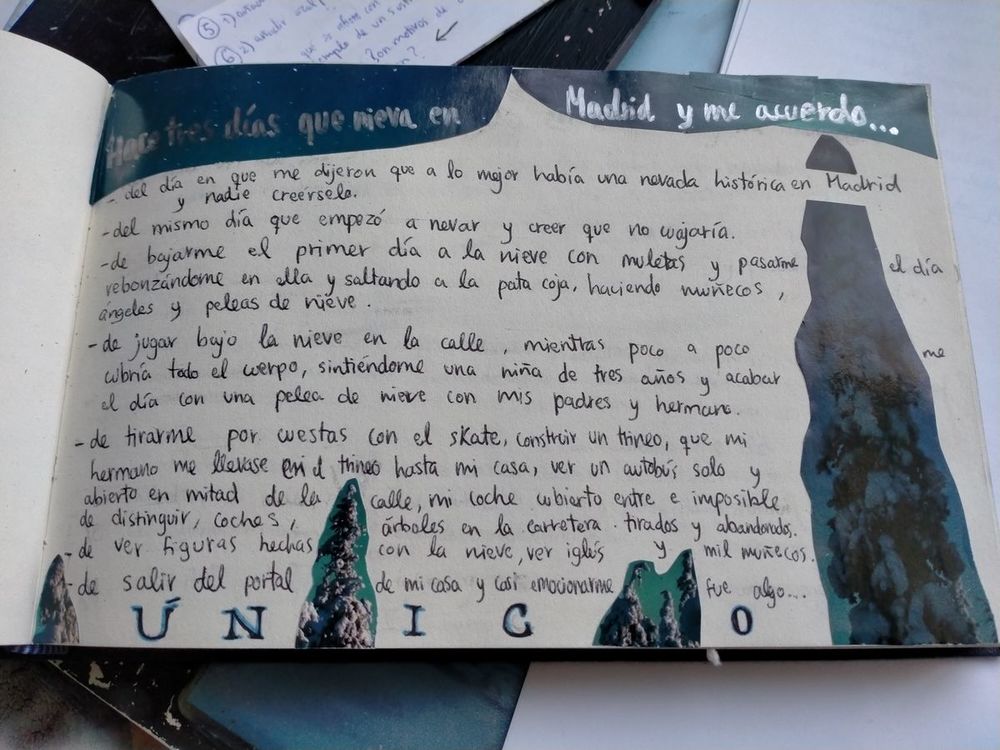 ⑤ 1)
⑥ 2) añadir
Son motivos de
Hace tres días que nieva en Madrid y me acuerdo...
- del día en que me dijeron que a lo mejor había una nevada histórica en Madrid
y nadie creérselo.
- del mismo día que empezó a nevar y creer que no cuajaría.
- de bajarme el primer día a la nieve con muletas y pasarme el día
rebonzándome en ella y saltando a la pata coja, haciendo muñecos,
ángeles y peleas de nieve.
- de jugar bajo la nieve en la calle, mientras poco a poco me
cubría todo el cuerpo, sintiéndome una niña de tres años y acabar
el día con una pelea de nieve con mis padres y hermano.
- de tirarme por cuestas con el skate, construir un trineo, que mi
hermano me llevase en el trineo hasta mi casa, ver un autobús solo y
abierto en mitad de la calle, mi coche cubierto entre e imposible
de distinguir, coches, árboles en la carretera tirados y abandonados.
- de ver figuras hechas con la nieve, ver iglús y mil muñecos.
- de salir del portal de mi casa y casi emocionarme fue algo...
ÚNICO